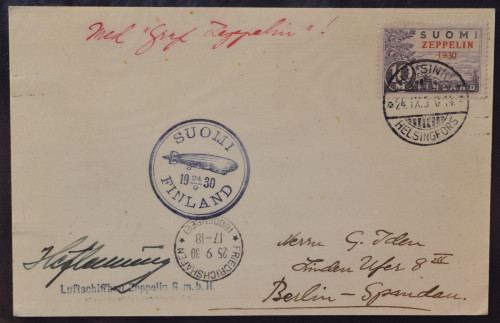 Med "Graf Zeppelin"!
SUOMI
ZEPPELIN
1930
10
FINLAND
HELSINKI
24.IX.3
HELSINGFORS
SUOMI
19 24/9 30
FINLAND
FRIEDRICHSHAFEN
25.9.30
17-18
(BODENSEE)
Luftschiffbau Zeppelin G.m.b.H.
Herrn G. Iden
Linden Ufer 8 III
Berlin-Spandau.